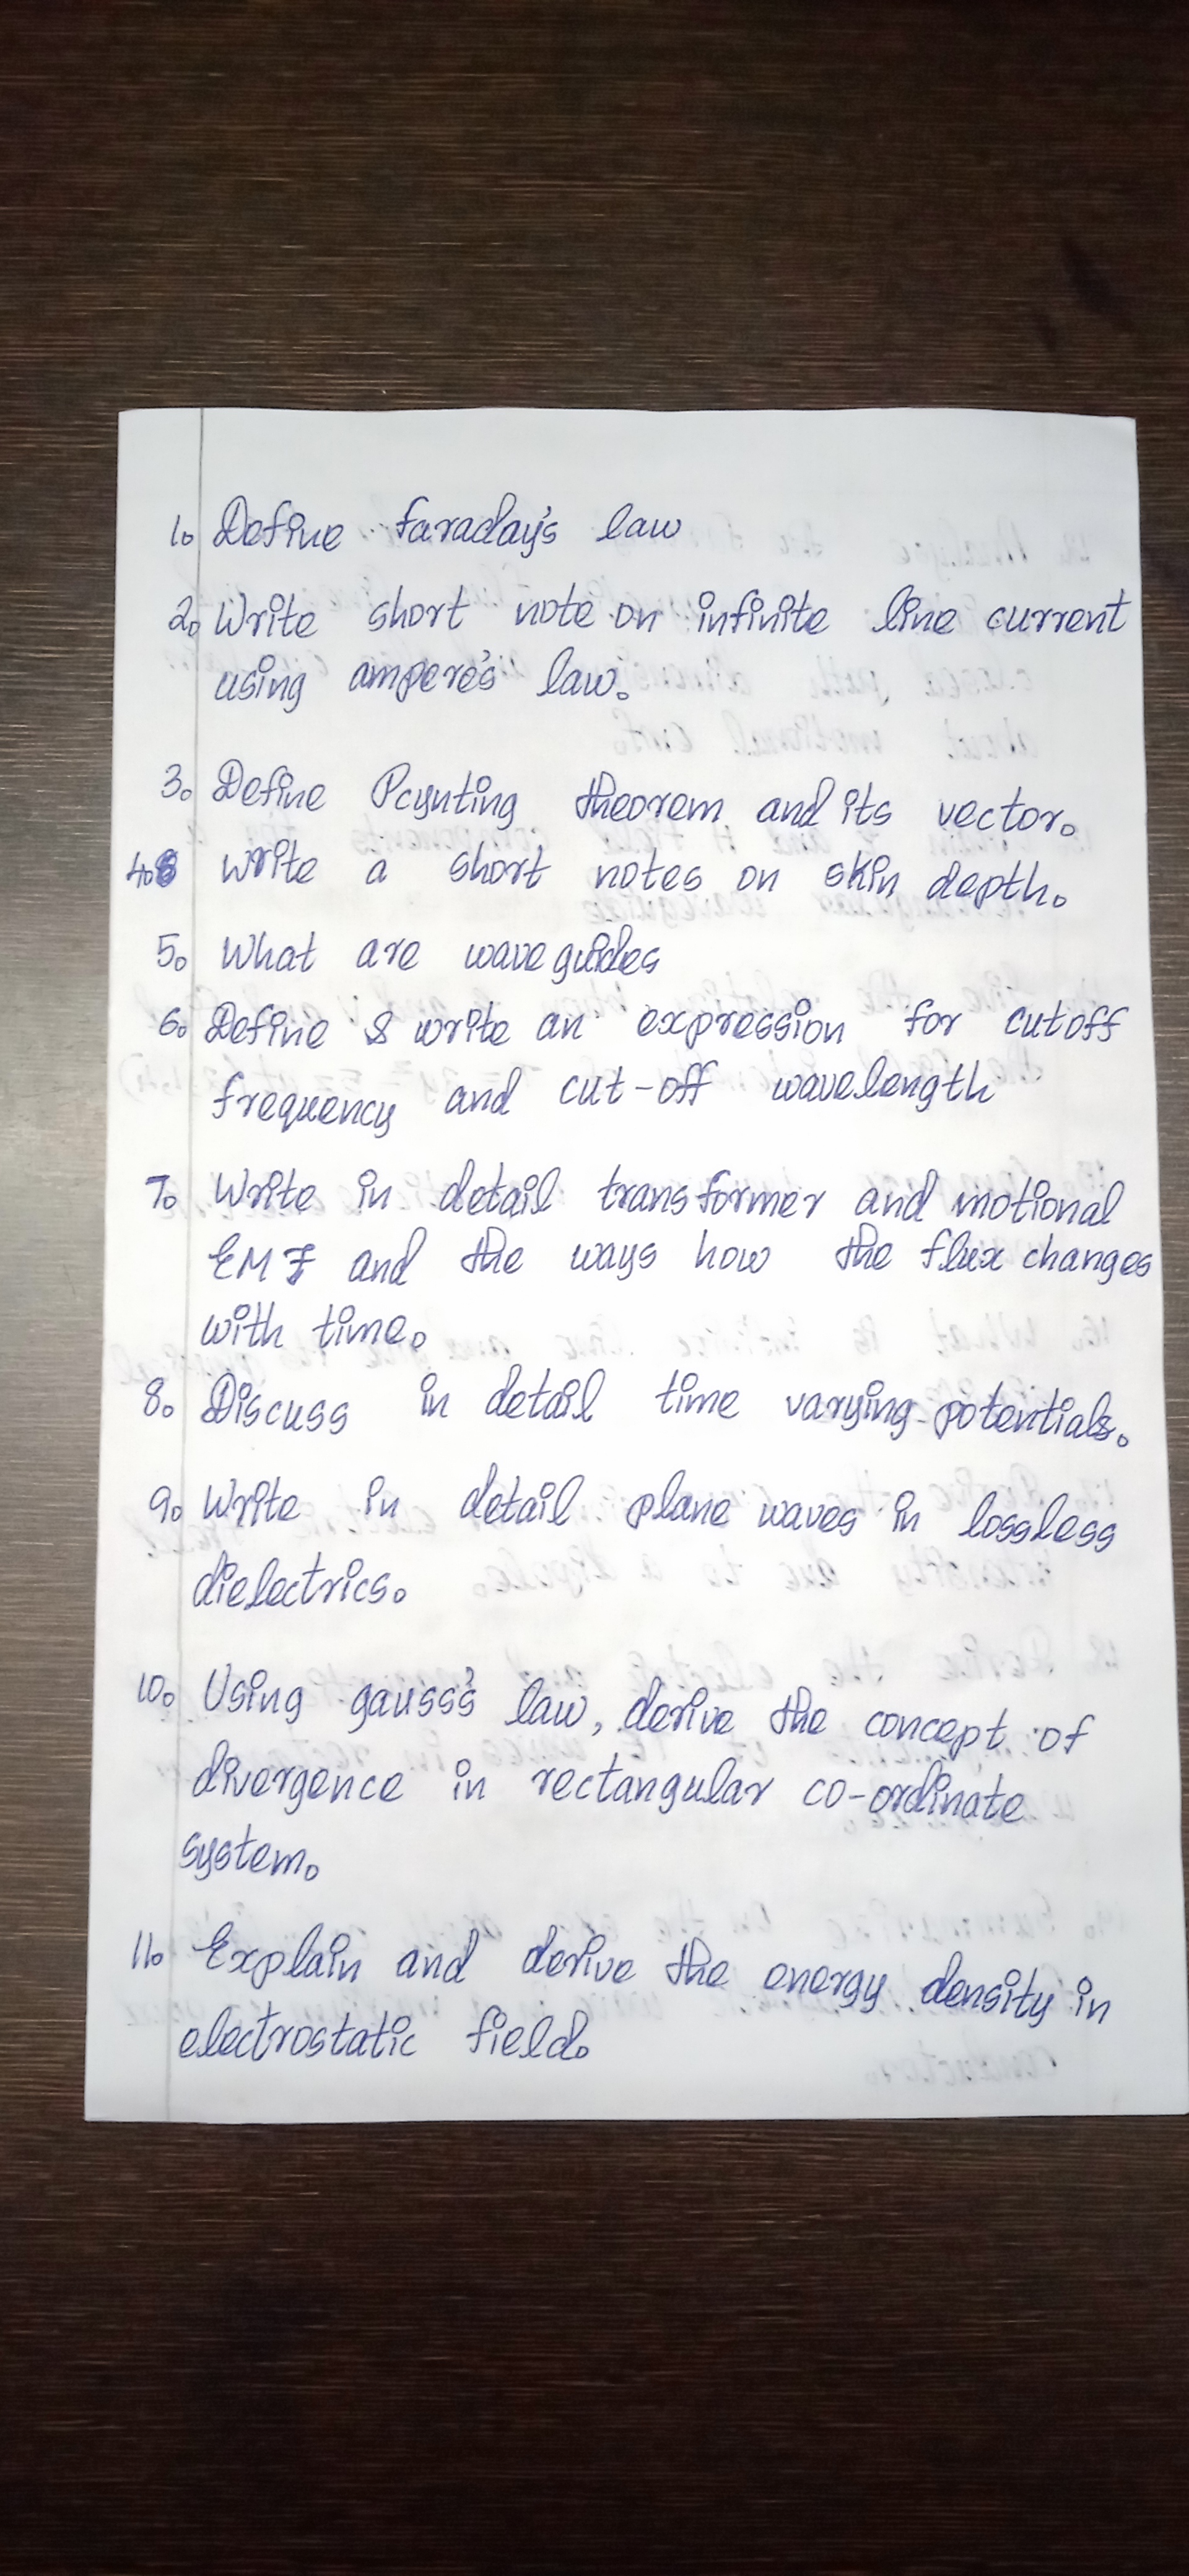 1. Define faraday's law
2. Write short note on infinite line current
using ampere's law.
3. Define Poynting theorem and its vector.
4. Write a short notes on skin depth.
5. What are wave guides
6. Define & write an expression for cutoff
frequency and cut-off wavelength
7. Write in detail transformer and motional
EMF and the ways how the flux changes
with time.
8. Discuss in detail time varying potentials.
9. Write in detail plane waves in lossless
dielectrics.
10. Using gauss's law, derive the concept of
divergence in rectangular co-ordinate
system.
11. Explain and derive the energy density in
electrostatic field.